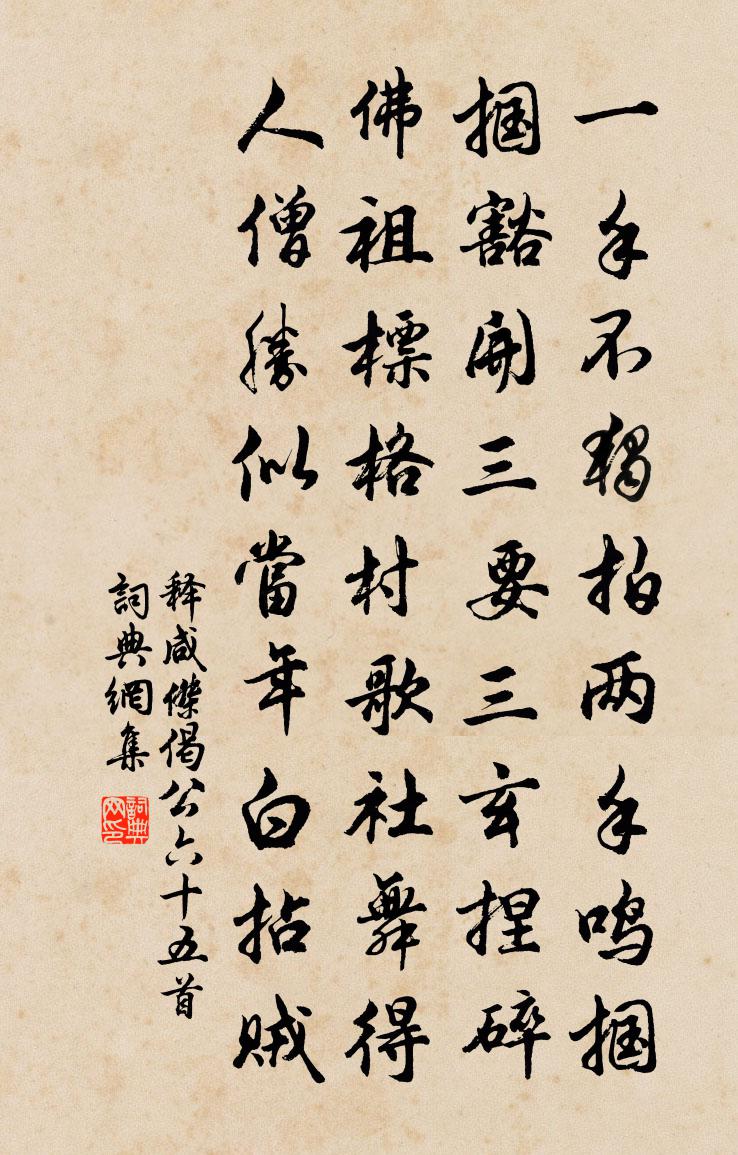 一手不獨拍两手鸣掴
掴豁開三要三玄捏碎
佛祖標格村歌社舞得
人僧勝似當年白拈贼
释咸傑偈公六十五首
詞典網集
詞典网印